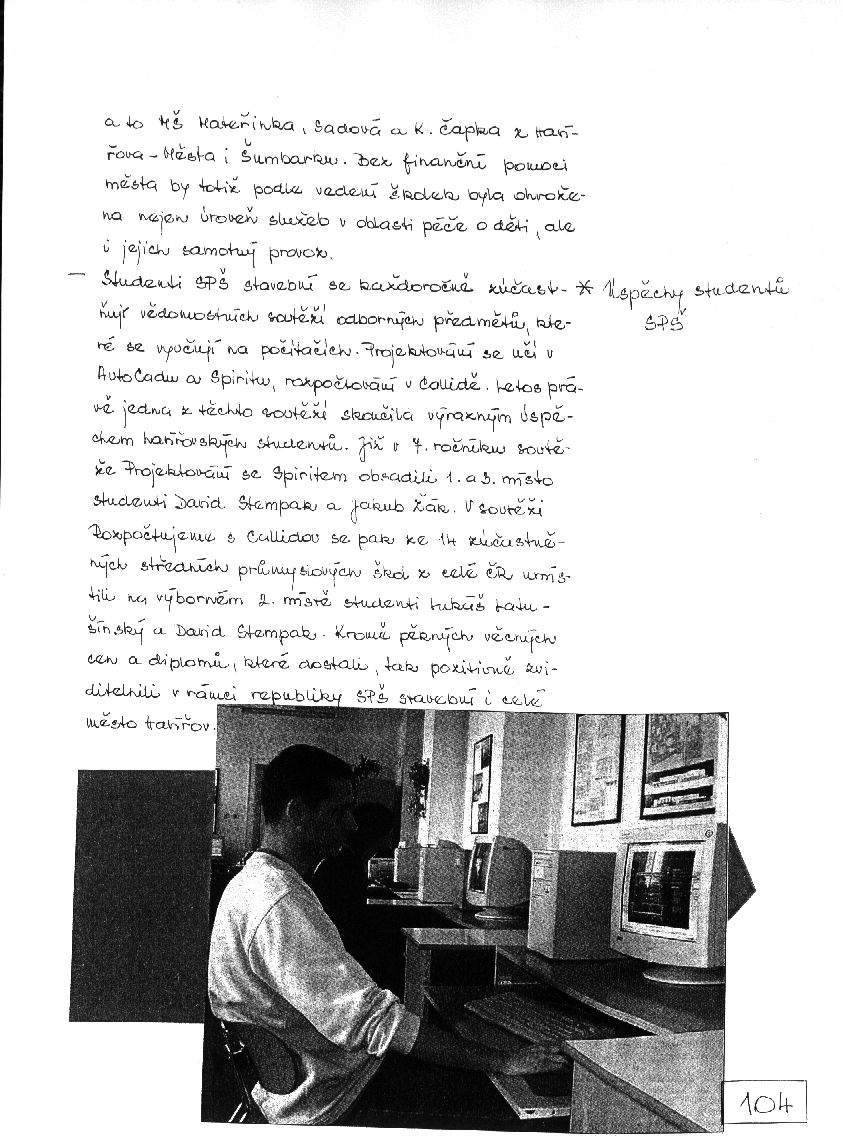 a to MŠ Mateřinka, Sadová a K. Čapka z Haví-
řova-Města i Šumbarku. Bez finanční pomoci
města by totiž podle vedení školek byla ohrože-
na nejen úroveň služeb v oblasti péče o děti, ale
i jejich samotný provoz.
– Studenti SPŠ stavební se každoročně zúčast-
* Úspěchy studentů
SPŠ
ňují vědomostních soutěží odborných předmětů, kte-
ré se vyučují na počítačích. Projektování se učí v
AutoCadu a Spiritu, rozpočtování v Callidě. Letos prá-
vě jedna z těchto soutěží skončila výrazným úspě-
chem havířovských studentů. Již v 7. ročníku soutě-
že Projektování se Spiritem obsadili 1. a 3. místo
studenti David Stempak a Jakub Žák. V soutěži
Rozpočtujeme s Callidou se pak ze 14 zúčastně-
ných středních průmyslových škol z celé ČR umís-
tili na výborném 2. místě studenti Lukáš Latu-
šinský a David Stempak. Kromě pěkných věcných
cen a diplomů, které dostali, tak pozitivně zvi-
ditelnili v rámci republiky SPŠ stavební i celé
město Havířov.
104